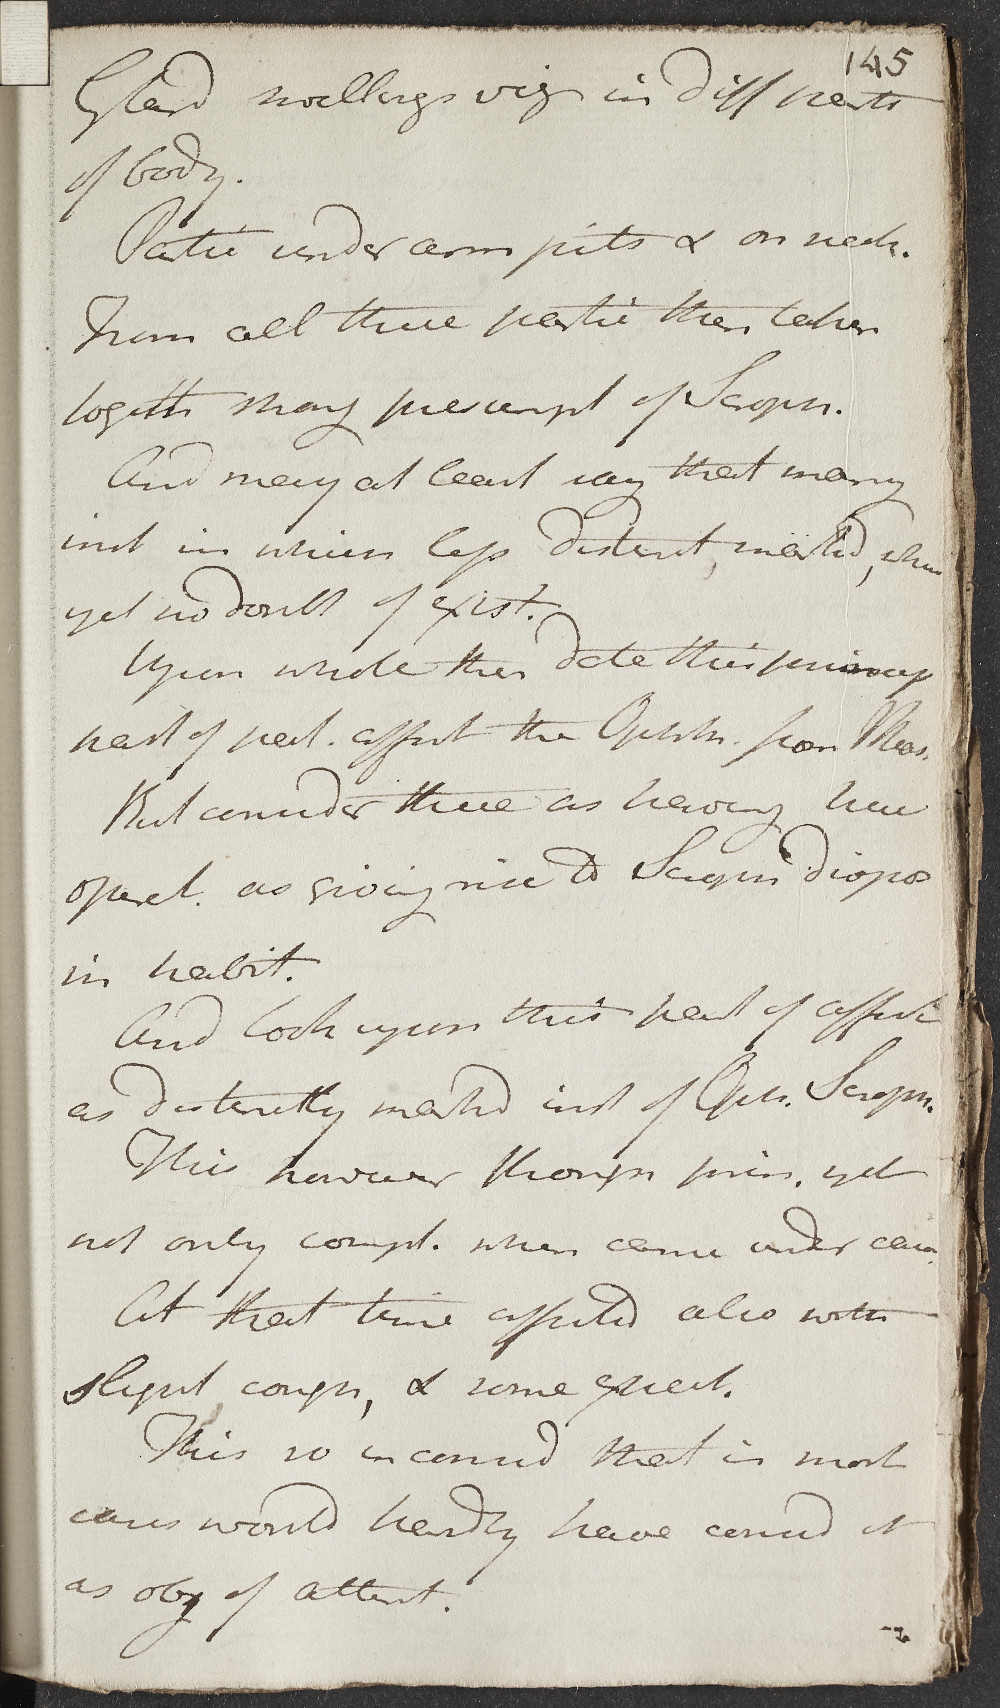 145
Gland swellings viz in diff parts
of body.
Partic under arm pits & on neck.
From all these partic then taken
togeth strong presumpt of Scroph.
And may at least say that many
inst in which less distinct, marked, when
yet no doubt of exist.
Upon whole then date this primary
part of pat. affect the Ophth. from Meas.
But consider these as having here
operat. as giving rise to Scroph dispos
in habit.
And look upon this part of affect
as distinctly marked inst of Oph. Scroph.
This however though prin. yet
not only compl. when came under care.
At that time affected also with
slight cough, & some expect.
This so inconsid that in most
cases would hardly have consid it
as obj of attent.